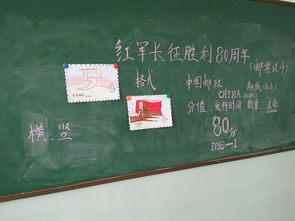 红军长征胜利80周年
(邮票设计)
格式
中国邮政
CHINA
分值 发行时间 数量
横、竖
80分
2016—1